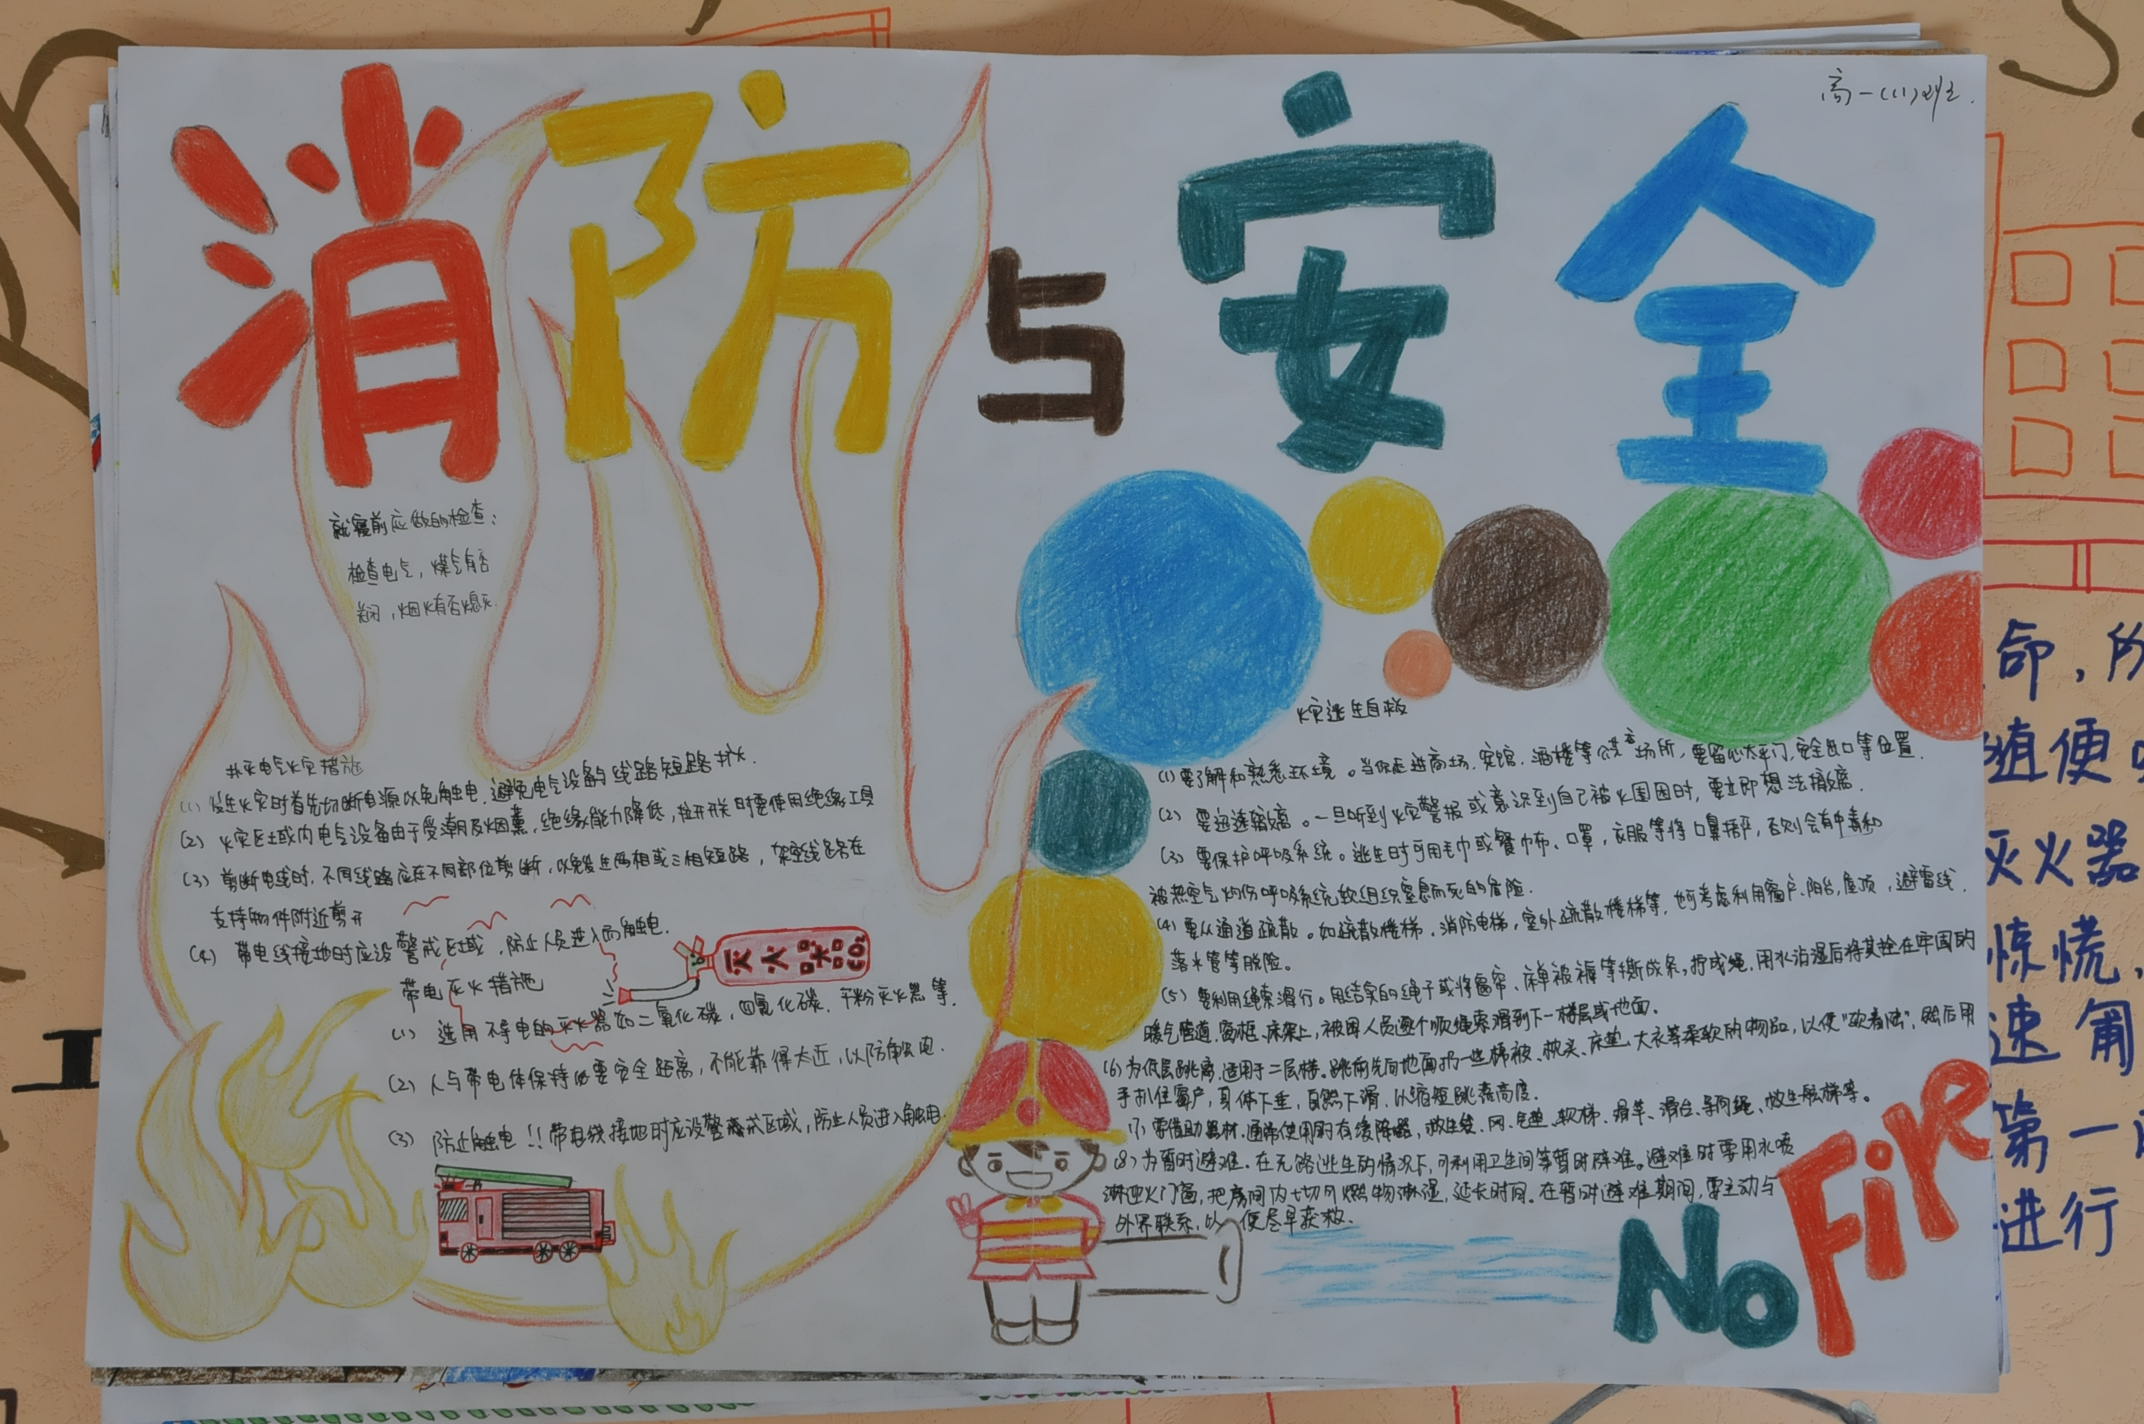 高一(1)班
消防与安全
就寝前应做的检查:
检查电气，煤气有否
关闭，烟火有否熄灭.
扑灭电气火灾措施
(1) 发生火灾时首先切断电源以免触电，避免电气设备与线路短路扑火.
(2) 火灾区域内电气设备由于受潮及烟熏，绝缘能力降低，拉开关时要使用绝缘工具
(3) 剪断电线时，不同线路应在不同部位剪断，以免发生两相或三相短路，架空线路在
支持物件附近剪开
(4) 带电线接地时应设警戒区域，防止人员进入而触电.
灭火器 CO2
带电灭火措施
(1) 选用不导电的灭火器如二氧化碳，四氯化碳，干粉灭火器等.
(2) 人与带电体保持必要安全距离，不能靠得太近，以防触电.
(3) 防止触电!!带电线接地时应设警戒区域，防止人员进入触电.
火灾逃生自救
(1) 要了解和熟悉环境。当你走进商场，宾馆，酒楼等公共场所，要留心太平门，安全出口等位置.
(2) 要迅速撤离。一旦听到火灾警报或意识到自己被火围困时，要立即想法撤离.
(3) 要保护呼吸系统。逃生时可用毛巾或餐巾布、口罩，衣服等将口鼻捂严，否则会有中毒和
被热空气灼伤呼吸系统软组织窒息而死的危险.
(4) 要从通道疏散。如疏散楼梯，消防电梯，室外疏散楼梯等，也可考虑利用窗户、阳台，屋顶，避雷线，
落水管等脱险。
(5) 要利用绳索滑行。用结实的绳子或将窗帘、床单被褥等撕成条，拧成绳，用水沾湿后将其拴在牢固的
暖气管道，窗框，床架上，被困人员逐个顺绳索滑到下一楼层或地面.
(6) 为低层跳离，适用于二层楼。跳前先向地面扔一些棉被、枕头、床垫、大衣等柔软的物品，以便"软着陆"，然后用
手扒住窗户，身体下垂，自然下滑，以缩短跳落高度.
(7) 要借助器材，通常使用的有缓降器，救生袋、网、气垫、软梯、滑竿、滑台、导向绳、救生舷梯等。
(8) 为暂时避难，在无路逃生的情况下，可利用卫生间等暂时辟难。避难时要用水喷
淋迎火门窗，把房间内一切可燃物淋湿，延长时间。在暂时避难期间，要主动与
外界联系，以便尽早获救.
No Fire
命，防
随便
灭火器
惊慌，
速匍
第一
进行